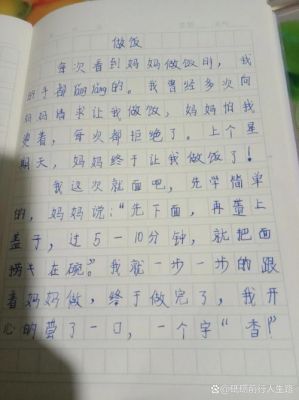 做饭
每次看到妈妈做饭时，我
的手都痒痒的。我曾经多次向
妈妈请求让我做饭，妈妈怕我
烫着，每次都拒绝了。上个星
期天，妈妈终于让我做饭了！
我这次就面吧，先学简单
的，妈妈说：“先下面，再盖上
盖子，过5一10分钟，就把面
捞在碗”。我就一步一步的跟
着妈妈做，终于做完了，我开
心的尝了一口，一个字“香！”
@砥砺前行人生路